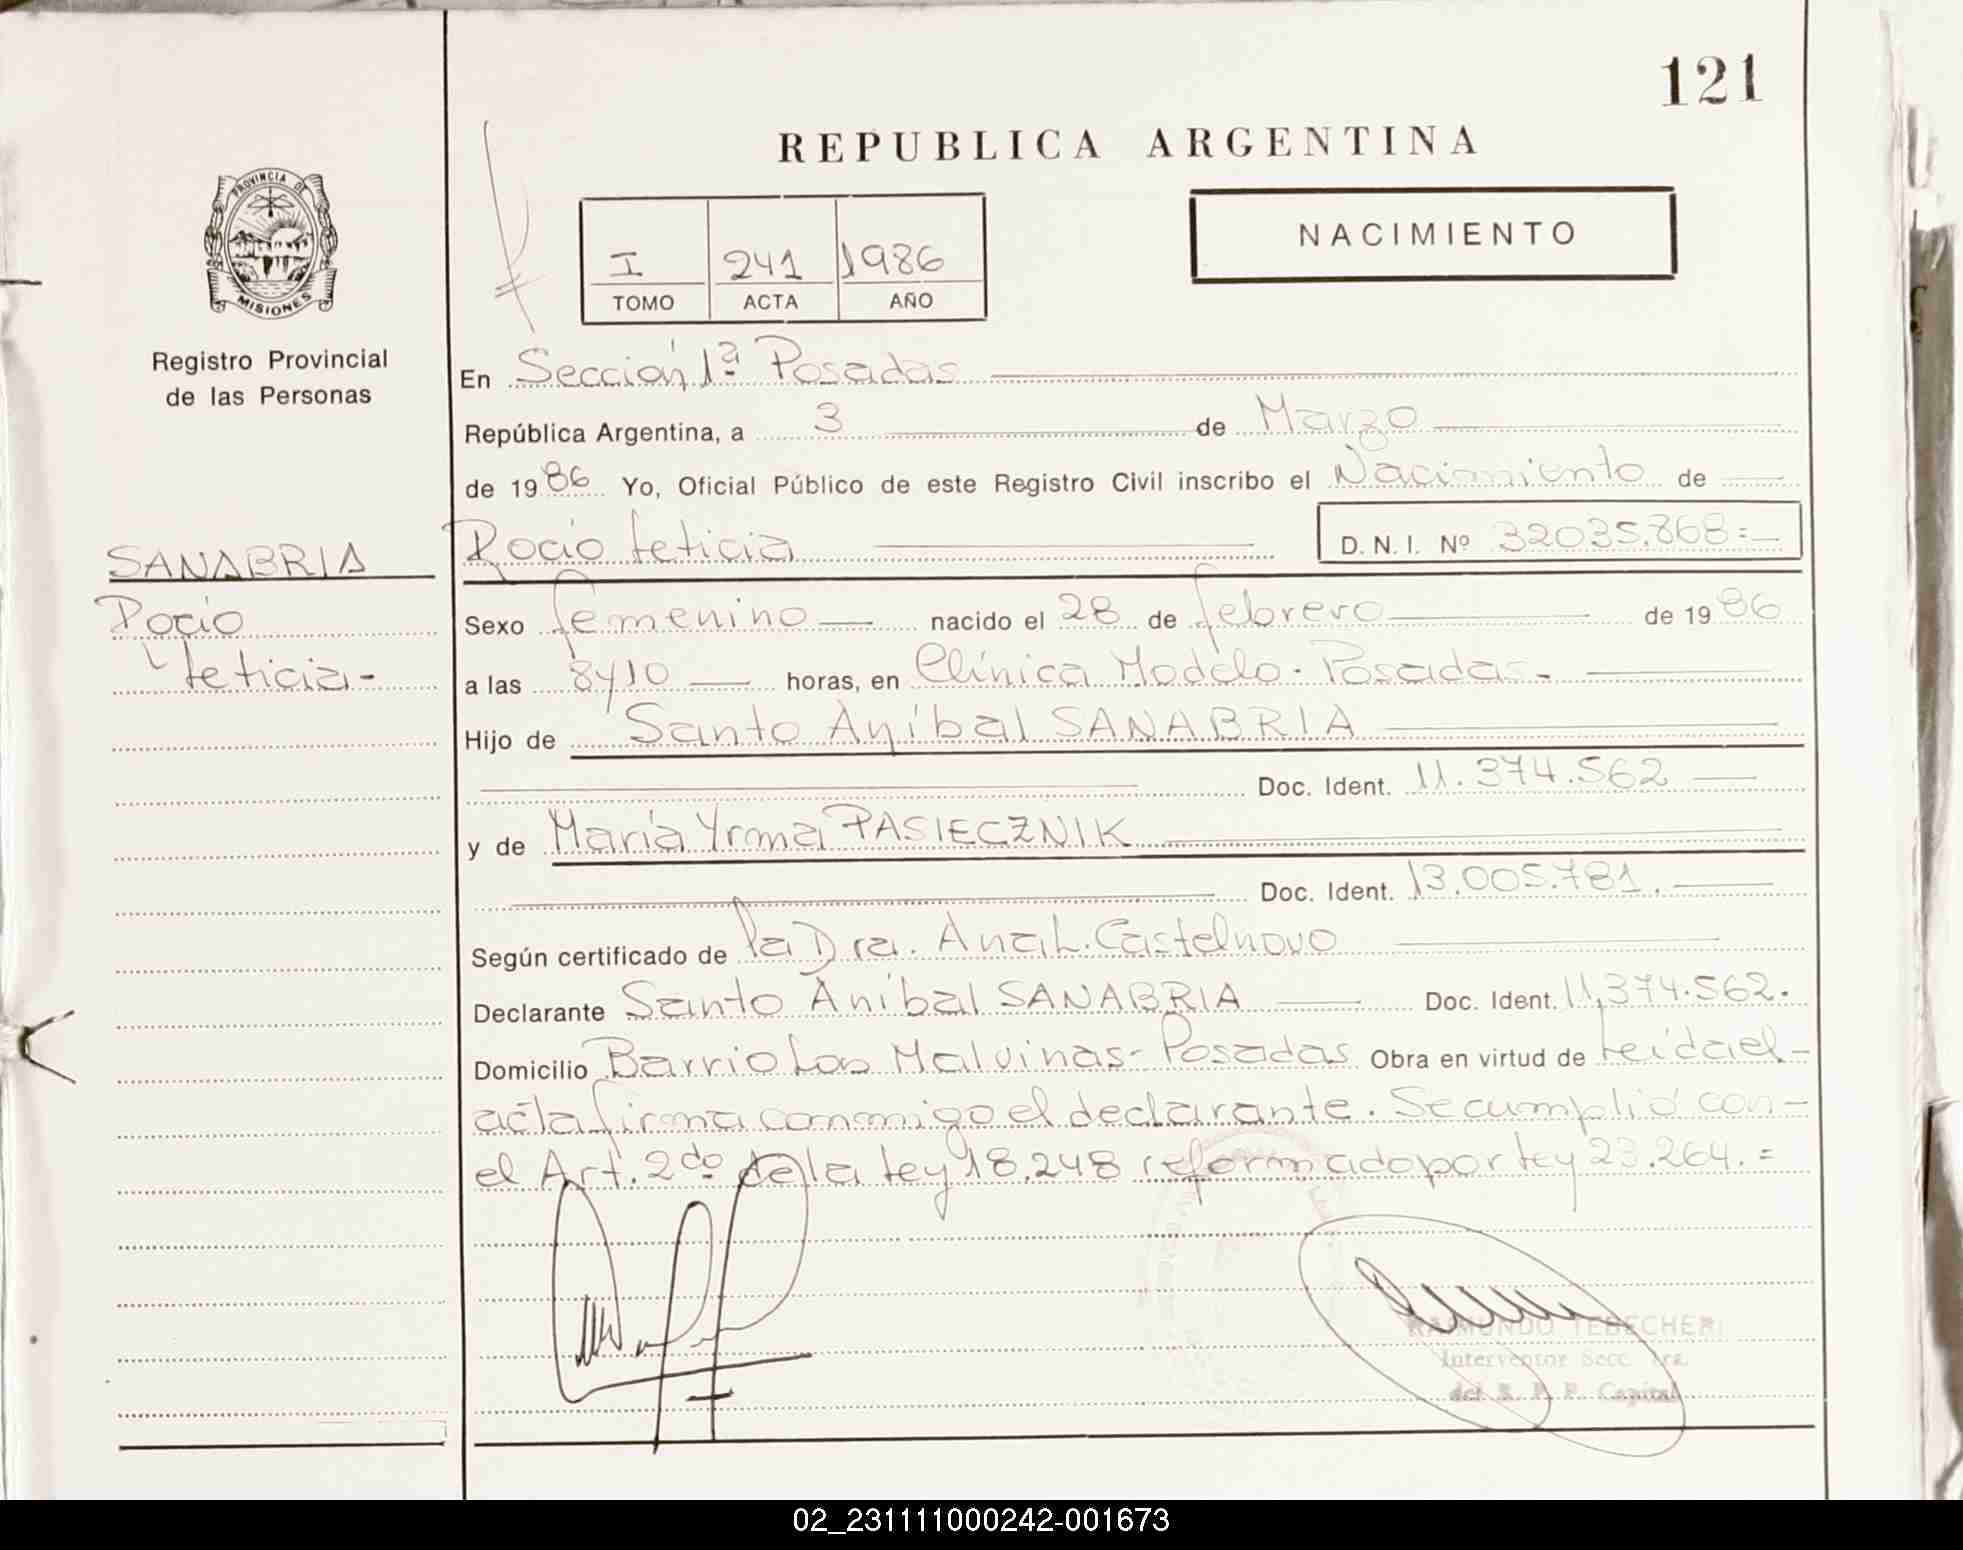 121
REPUBLICA ARGENTINA
PROVINCIA DE
MISIONES
Registro Provincial
de las Personas
I 241 1986
TOMO ACTA AÑO
NACIMIENTO
En Sección 1ª Posadas
República Argentina, a 3 de Marzo
de 1986 Yo, Oficial Público de este Registro Civil inscribo el Nacimiento de
Rocio Leticia D. N. I. Nº 32035.868=
SANABRIA
Rocio
Leticia-
Sexo femenino nacido el 28 de febrero de 1986
a las 8y10 horas, en Clínica Modelo. Posadas-
Hijo de Santo Aníbal SANABRIA
Doc. Ident. 11.374.562
y de María Yrma PASIECZNIK
Doc. Ident. 13.005.781.
Según certificado de la Dra. Ana L. Castelnovo
Declarante Santo Aníbal SANABRIA Doc. Ident. 11,374.562.
Domicilio Barrio Las Malvinas- Posadas Obra en virtud de Leída el-
acta firma conmigo el declarante. Se cumplió con-
el Art. 2do de la Ley 18.248 reformado por Ley 23.264.=
RAIMUNDO TEBECHERI
Interventor Secc. 1ra.
del R. P. P. Capital
02_231111000242-001673